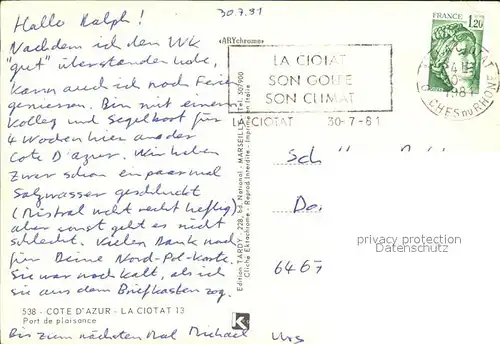 Hallo Ralph!
30.7.81
Nachdem ich den WK
"gut" überstanden habe,
kann auch ich noch Ferien
geniessen. Bin mit einem
Kolleg und Segelboot für
4 Wochen hier an der
Cote D'azur. Wir haben
zwar schon ein paar mal
Salzwasser geschluckt
(Mistral weht recht heftig)
aber sonst geht es nicht
schlecht. Vielen Dank noch
für Deine Nord-Pol-Karte.
Sie war noch kalt, als ich
sie aus dem Briefkasten zog.
538 - COTE D'AZUR - LA CIOTAT 13
Port de plaisance
Bis zum nächsten Mal Michael Urs
«ARYchrome»
Edition TARDY - 228, bd. National - MARSEILLE - Tél. 50/900
Cliché Ektachrome - Reprod. Interdite - Imprimé en Italie
K
LA CIOTAT
SON GOLFE
SON CLIMAT
LA CIOTAT 30-7-81
FRANCE
1,20
BCHES DU RHONE
Sch
Da.
646
privacy protection
Datenschutz